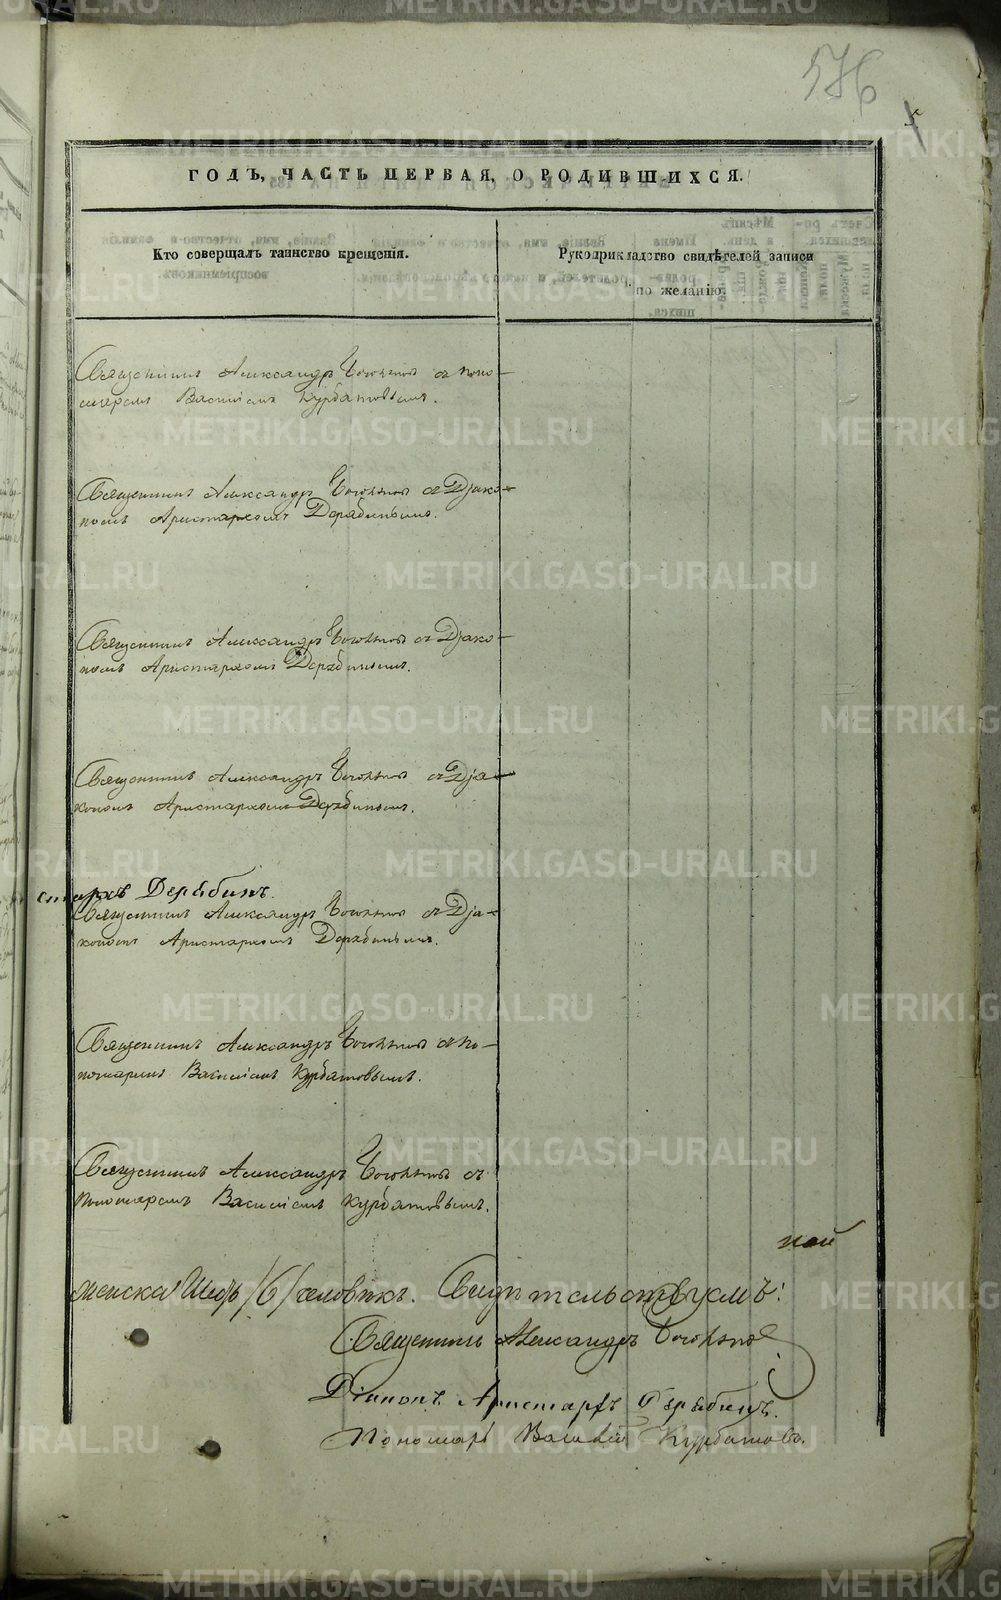 576
5
ГОДЪ, ЧАСТЬ ПЕРВАЯ, О РОДИВШИХСЯ.
Кто совершалъ таинство крещенія.
Рукоприкладство свидѣтелей записи
по желанію.
Священникъ Александръ с поно-
маремъ Василіемъ Курбатовымъ.
Священникъ Александръ съ Діако-
номъ Аристархомъ Дерябинымъ.
Священникъ Александръ съ Діако-
номъ Аристархомъ Дерябинымъ.
Священникъ Александръ съ Діа-
кономъ Аристархомъ Дерябинымъ.
стархъ Дерябинъ.
Священникъ Александръ съ Діа-
кономъ Аристархомъ Дерябинымъ.
Священникъ Александръ с по-
номаремъ Василіемъ Курбатовымъ.
Священникъ Александръ съ
Пономаремъ Василіемъ Курбатовымъ.
женска Шесть /6/ человѣкъ. Свидѣтельствуемъ:
Священникъ Александръ
Діаконъ Аристархъ Дерябинъ.
Пономарь Василій Курбатовъ.
METRIKI.GASO-URAL.RU